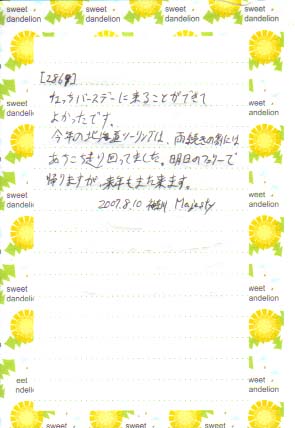 sweet dandelion sweet dandelion sweet dandelion
[286]
チェックバースデーに来ることができて
よかったです。
今年の北海道ツーリングは、雨続きの割には
あちこち走り回ってました。明日のフェリーで
帰りますが、来年もまた来ます。
2007.8.10 Majesty
sweet dandelion
sweet dandelion
sweet dandelion
sweet dandelion
eet
ndelion
sweet
andelion
sweet dandelion sweet dandelion sweet dandelion